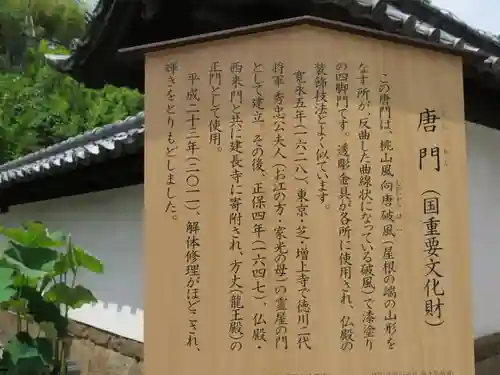 唐門（国重要文化財）
この唐門は、桃山風向唐破風（屋根の端の山形を
なす所が、反曲した曲線状になっている破風）で漆塗り
の四脚門です。透彫金具が各所に使用され、仏殿の
装飾技法とよく似ています。
寛永五年（一六二八）、東京・芝・増上寺で徳川二代
将軍 秀忠公夫人（お江の方・家光の母）の霊屋の門
として建立。その後、正保四年（一六四七）、仏殿・
西来門と共に建長寺に寄附され、方丈（龍王殿）の
正門として使用。
平成二十三年（二〇一一）、解体修理がほどこされ、
輝きをとりもどしました。